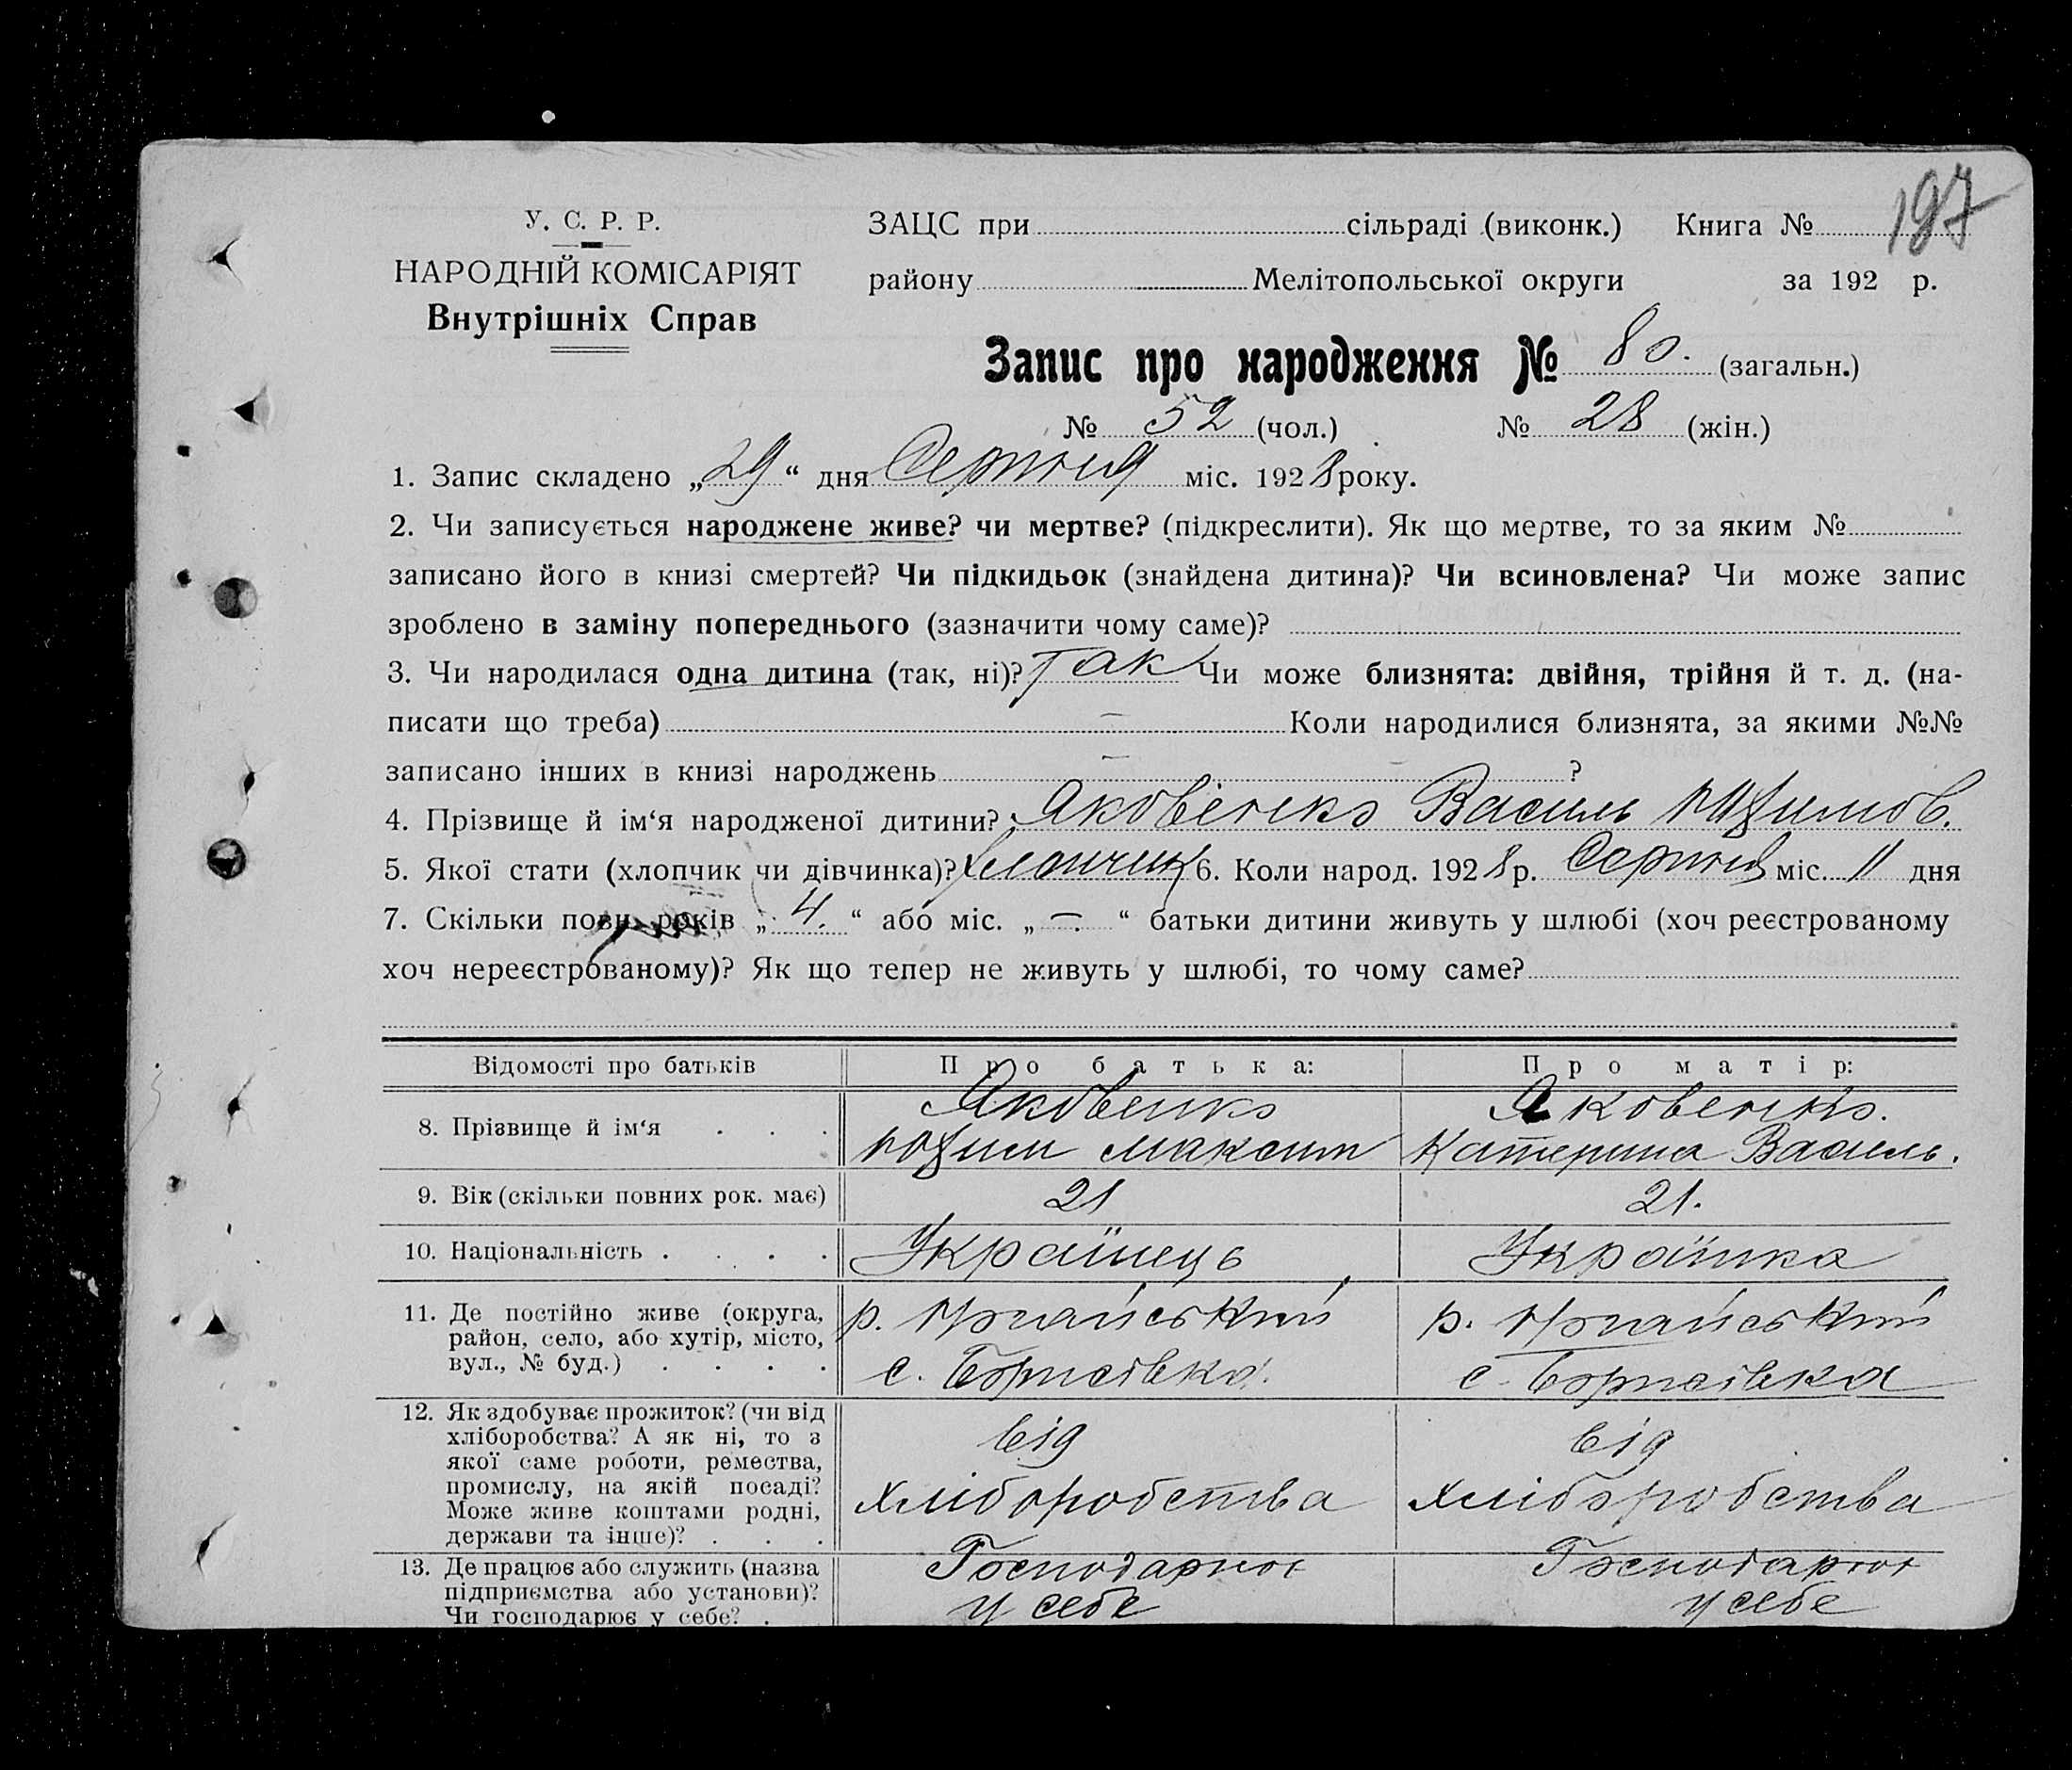 197
У. С. Р. Р.
НАРОДНІЙ КОМІСАРІЯТ
Внутрішніх Справ
ЗАЦС при сільраді (виконк.) Книга №
району Мелітопольської округи за 192 р.
Запис про народження № 80. (загальн.)
№ 52 (чол.) № 28 (жін.)
1. Запис складено „29“ дня Серпня міс. 1928 року.
2. Чи записується народжене живе? чи мертве? (підкреслити). Як що мертве, то за яким №
записано його в книзі смертей? Чи підкидьок (знайдена дитина)? Чи всиновлена? Чи може запис
зроблено в заміну попереднього (зазначити чому саме)?
3. Чи народилася одна дитина (так, ні)? Так Чи може близнята: двійня, трійня й т. д. (на-
писати що треба) — Коли народилися близнята, за якими №№
записано інших в книзі народжень — ?
4. Прізвище й ім‘я народженої дитини? Яковенко Василь
5. Якої стати (хлопчик чи дівчинка)? Хлопчик 6. Коли народ. 1928 р. Серпня міс. 11 дня
7. Скільки повн. років „4.“ або міс. „—.“ батьки дитини живуть у шлюбі (хоч реєстрованому
хоч нереєстрованому)? Як що тепер не живуть у шлюбі, то чому саме?
Відомості про батьків
Про батька:
Про матір:
8. Прізвище й ім‘я . . .
Яковенко
Максим
Яковенко.
Катерина Василь.
9. Вік (скільки повних рок. має)
21
21.
10. Національність . . . .
Українець
Українка
11. Де постійно живе (округа,
район, село, або хутір, місто,
вул., № буд.) . . . .
р.
с. Борисівка.
р.
с. Борисівка
12. Як здобуває прожиток? (чи від
хліборобства? А як ні, то з
якої саме роботи, ремества,
промислу, на якій посаді?
Може живе коштами родні,
держави та інше)? . . .
від
хліборобства
від
хліборобства
13. Де працює або служить (назва
підприємства або установи)?
Чи господарює у себе? .
Господарює
у себе
Господарює
у себе